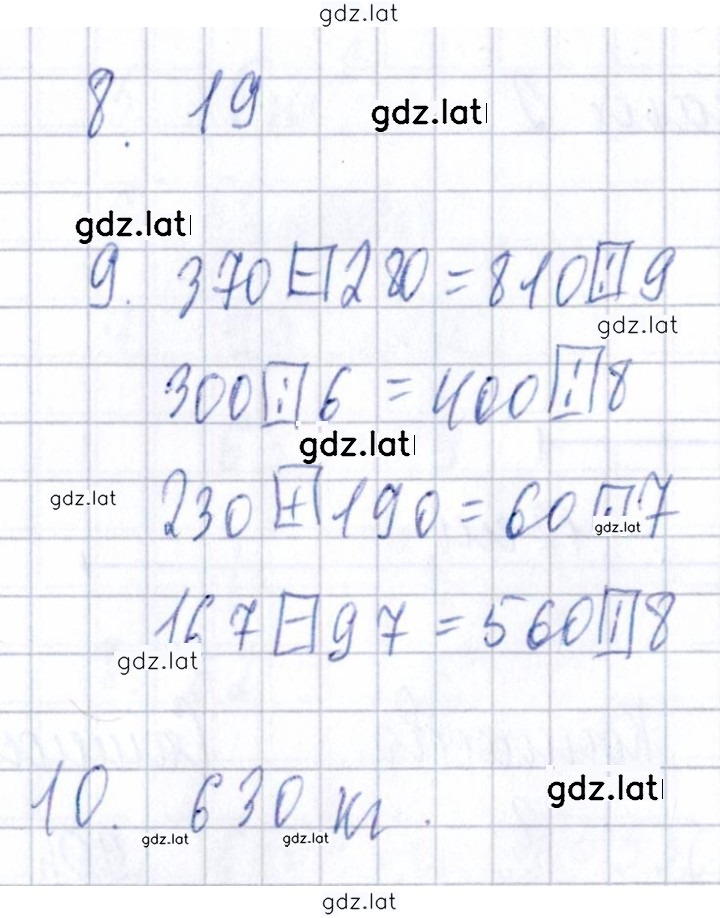 gdz.lat
8. 19
gdz.lat
gdz.lat
9. 370 - 280 = 810 : 9
gdz.lat
300 : 6 = 400 : 8
gdz.lat
gdz.lat
230 + 190 = 60 · 7
gdz.lat
167 - 97 = 560 : 8
gdz.lat
10. 630 кг.
gdz.lat
gdz.lat
gdz.lat
gdz.lat